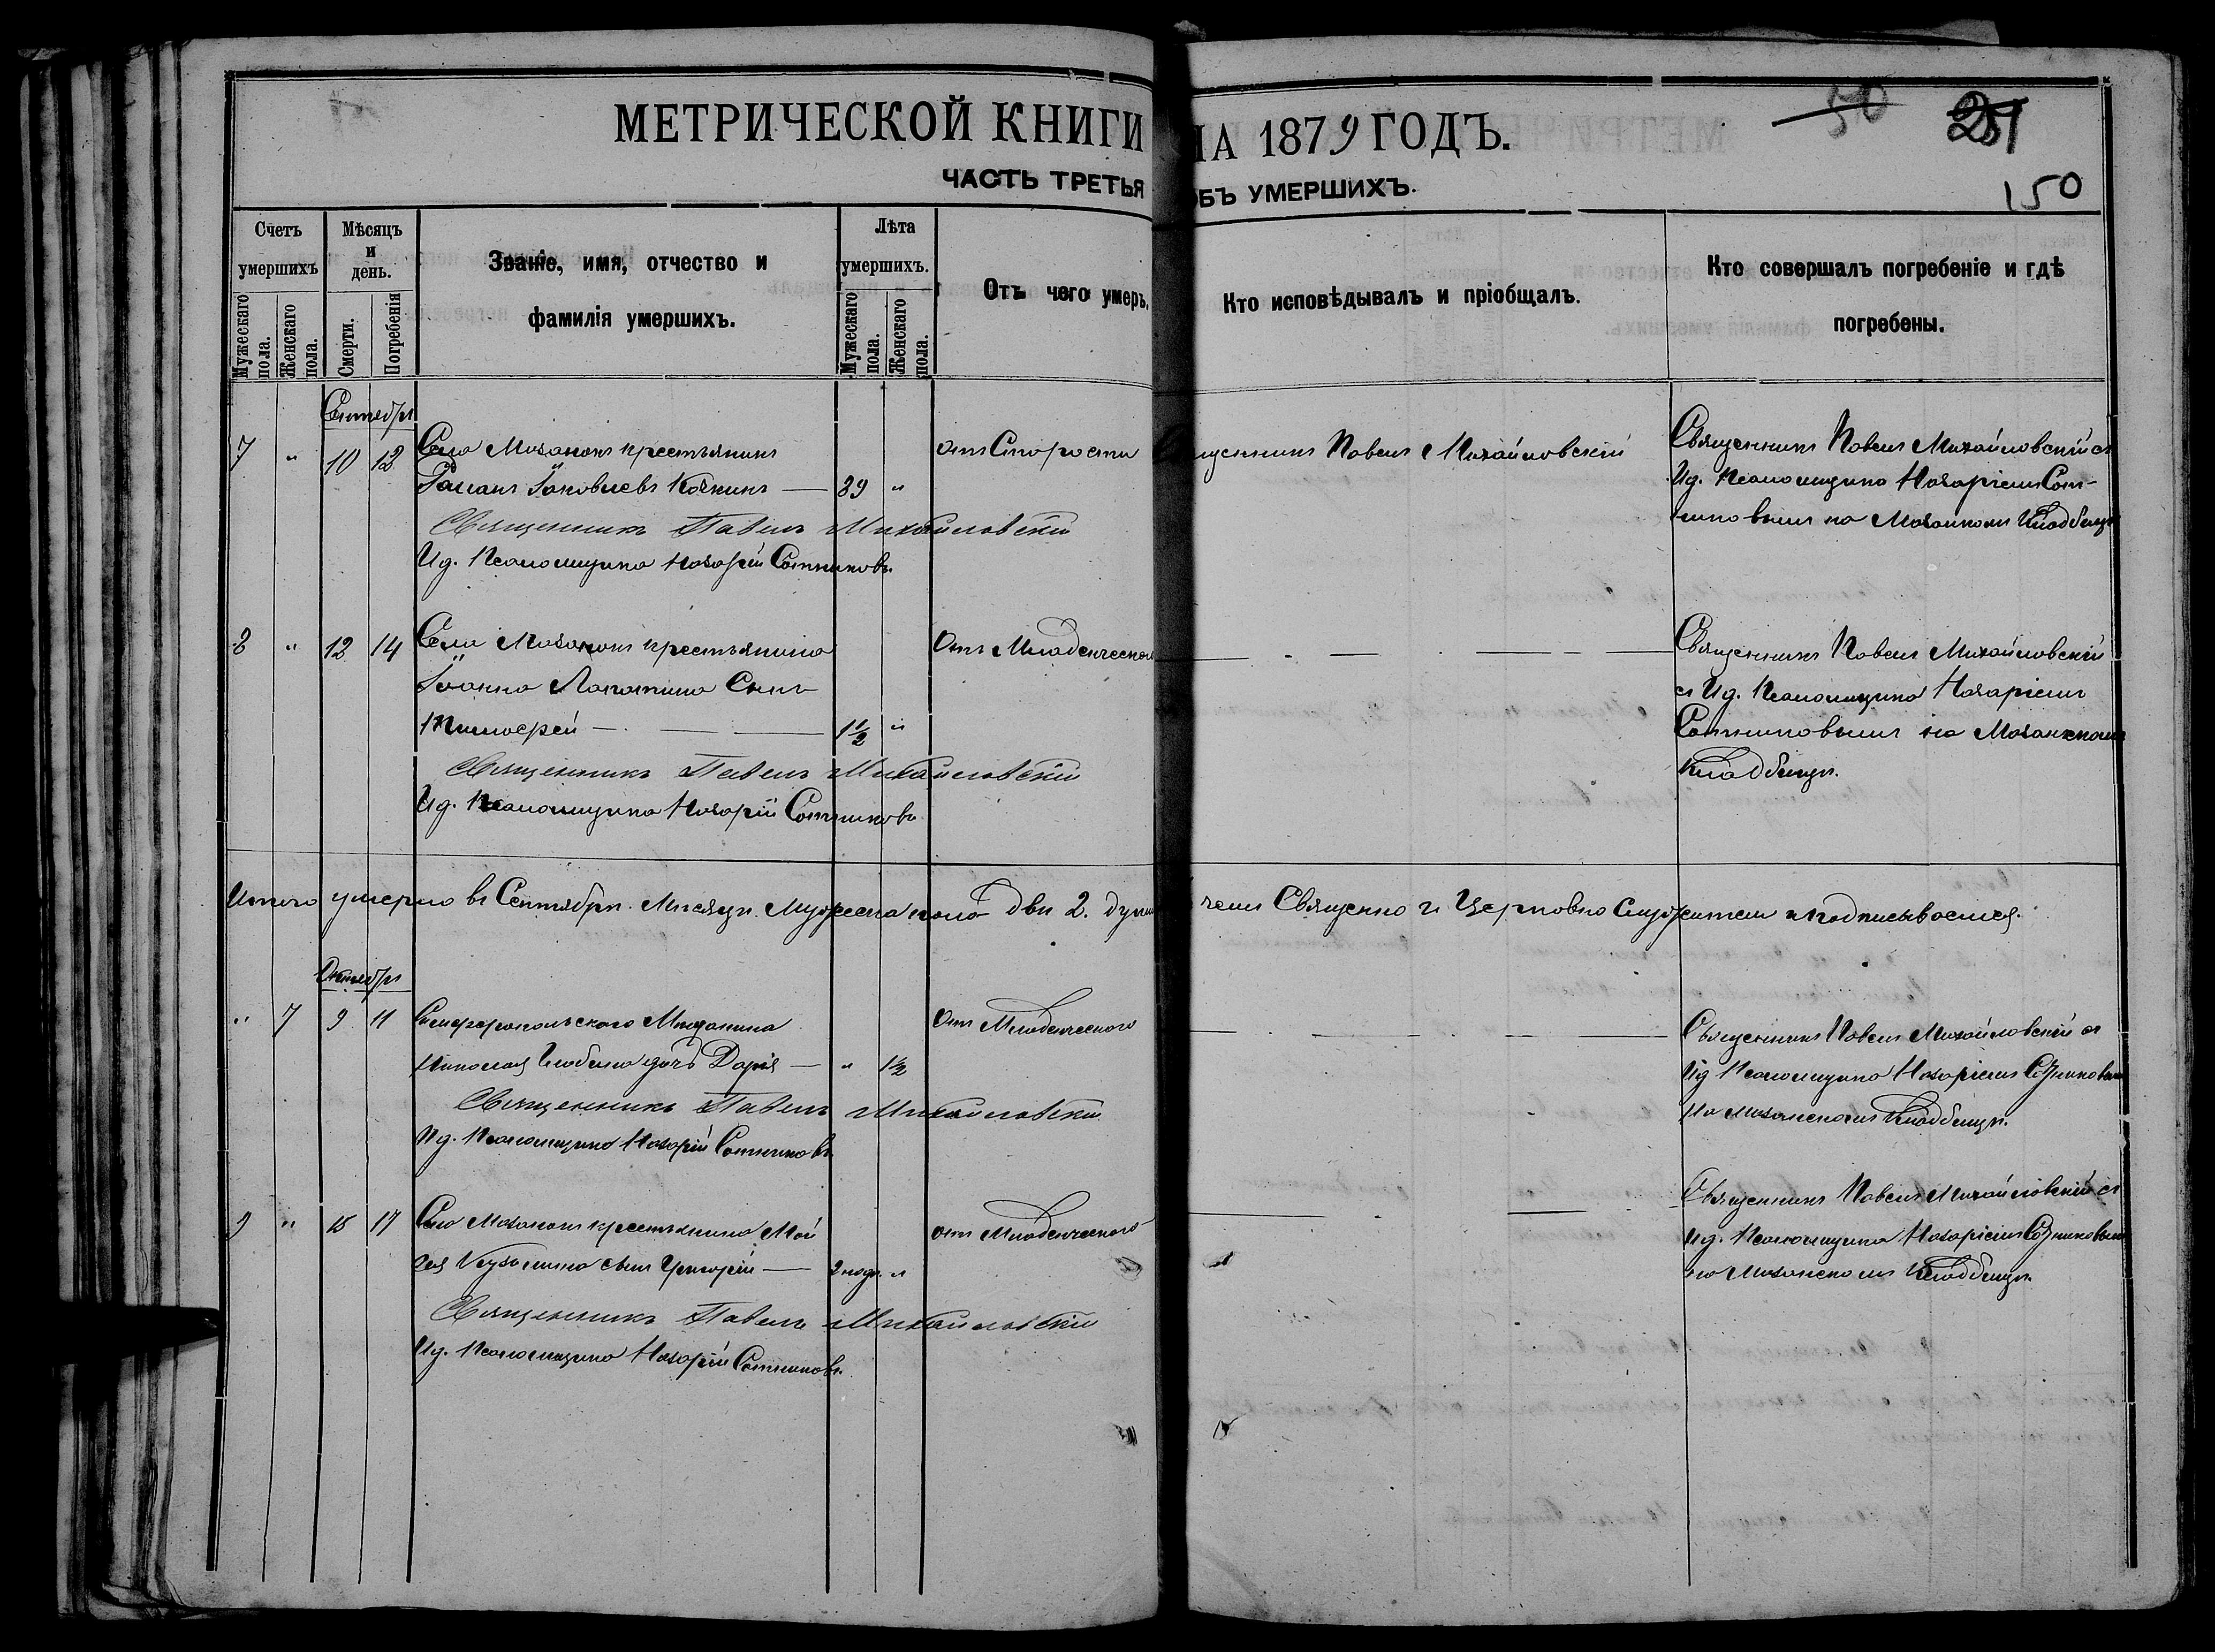 МЕТРИЧЕСКОЙ КНИГИ НА 1879 ГОДЪ.
50 251
150
ЧАСТЬ ТРЕТЬЯ ОБЪ УМЕРШИХЪ.
Счетъ умершихъ
Мужескаго пола.
Женскаго пола.
Мѣсяцъ и день.
Смерти.
Погребенія
Званіе, имя, отчество и
фамилія умершихъ.
Лѣта умершихъ.
Мужескаго пола.
Женскаго пола.
Отъ чего умеръ.
Кто исповѣдывалъ и пріобщалъ.
Кто совершалъ погребеніе и гдѣ
погребены.
Сентябрь
7 " 10 12 Села Мазанокъ крестьянинъ отъ Старости Священникъ Павелъ Михайловскій Священникъ Павелъ Михайловскій съ
Іаковлевъ 89 " Ид. Псаломщика Назаріемъ Сот-
Священникъ Павелъ Михайловскій
никовымъ на Мазанкомъ Кладбищѣ
Ид. Псаломщика Назарій Сотниковъ
8 " 12 14 Села Мазанокъ крестьянина Отъ Младенческой Священникъ Павелъ Михайловскій
Іоанна Лопатина Сынъ съ Ид. Псаломщика Назаріемъ
Тимоѳей 1½ " Сотниковымъ на Мазанскомъ
Священникъ Павелъ Михайловскій Кладбищѣ.
Ид. Псаломщика Назарій Сотниковъ
Итого умерло въ Сентябрѣ Мѣсяцѣ Мужеска пола двѣ 2. души чемъ Священно и Церковно Служители и подписываемся.
Октябрь
" 7 9 11 Симферопольскаго Мѣщанина Отъ Младенческаго Священникъ Павелъ Михайловскій съ
Николая дочь Дарія " 1½ Ид Псаломщика Назаріемъ Сотниковымъ
Священникъ Павелъ Михайловскій на Мазанскомъ Кладбищѣ.
Ид. Псаломщика Назарій Сотниковъ
9 " 15 17 Села Мазанокъ крестьянина Мой отъ Младенческаго Священникъ Павелъ Михайловскій съ
сея Кузьмина сынъ Григорій 2 нед. " Ид. Псаломщика Назаріемъ Сотниковымъ
Священникъ Павелъ Михайловскій на Мазанскомъ Кладбищѣ
Ид. Псаломщика Назарій Сотниковъ